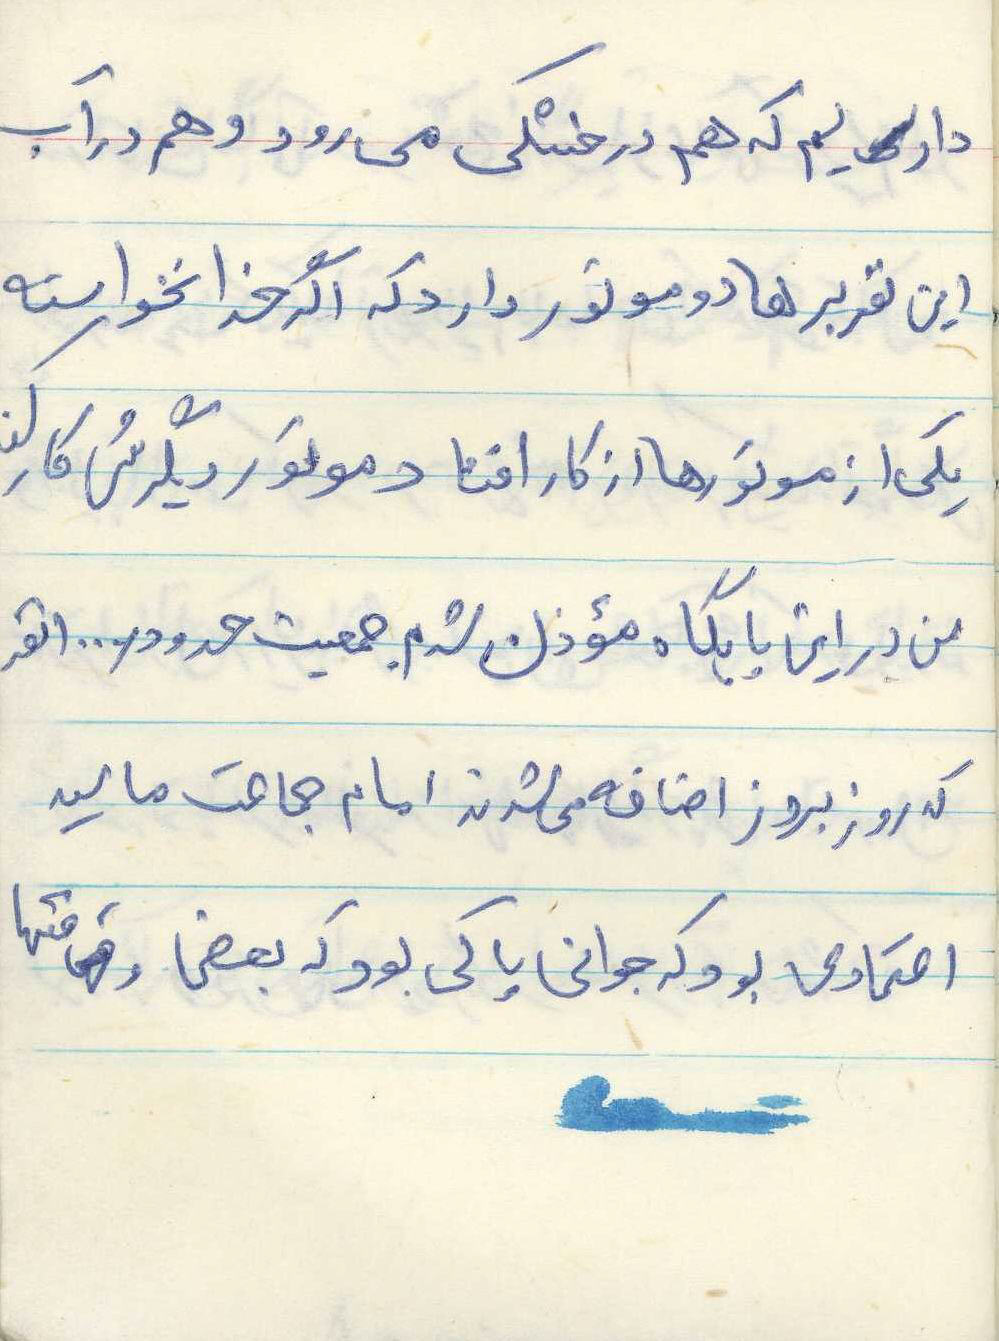 داریم که هم در خشکی می رود و هم در آب
این نفربرها دو موتور دارد که اگر خدا نخواسته
یکی از موتورها از کار افتاد موتور دیگرش کار کند
من در این پایگاه مؤذن شدم جمعیت حدود ۱۰۰ نفر
که روز بروز اضافه می شدند امام جماعت ما سید
اعتمادی بود که جوانی پاکی بود که بعضی وقتها